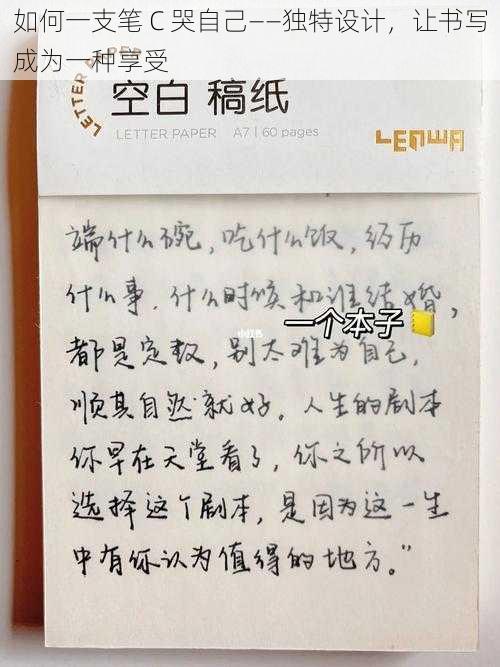 如何一支笔 C 哭自己——独特设计，让书写
成为一种享受
LETTER PAPER
空白 稿纸
LETTER PAPER A7 | 60 pages
LENWA
端什么碗，吃什么饭，经历
什么事，什么时候和谁结婚，
一个本子
小红书
都是定数，别太难为自己，
顺其自然就好。人生的剧本
你早在天堂看了，你之所以
选择这个剧本，是因为这一生
中有你认为值得的地方。”